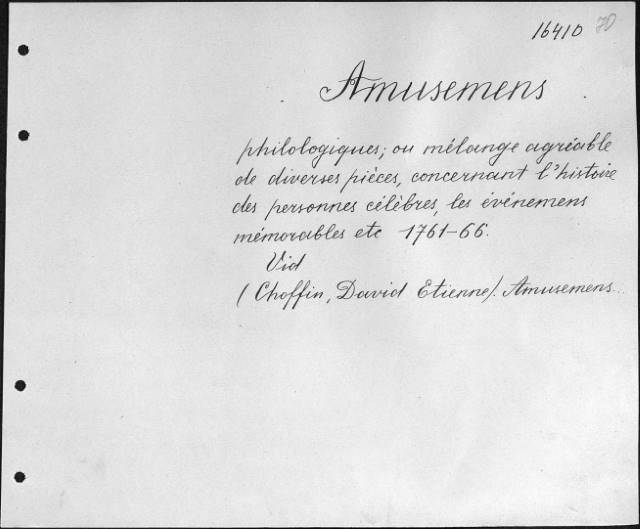 16410 70
Amusemens
philologiques; ou mélange agréable
de diverses pièces, concernant l'histoire
des personnes célèbres, les événemens
mémorables etc 1761-66.
Vid
(Choffin, David Etienne). Amusemens...